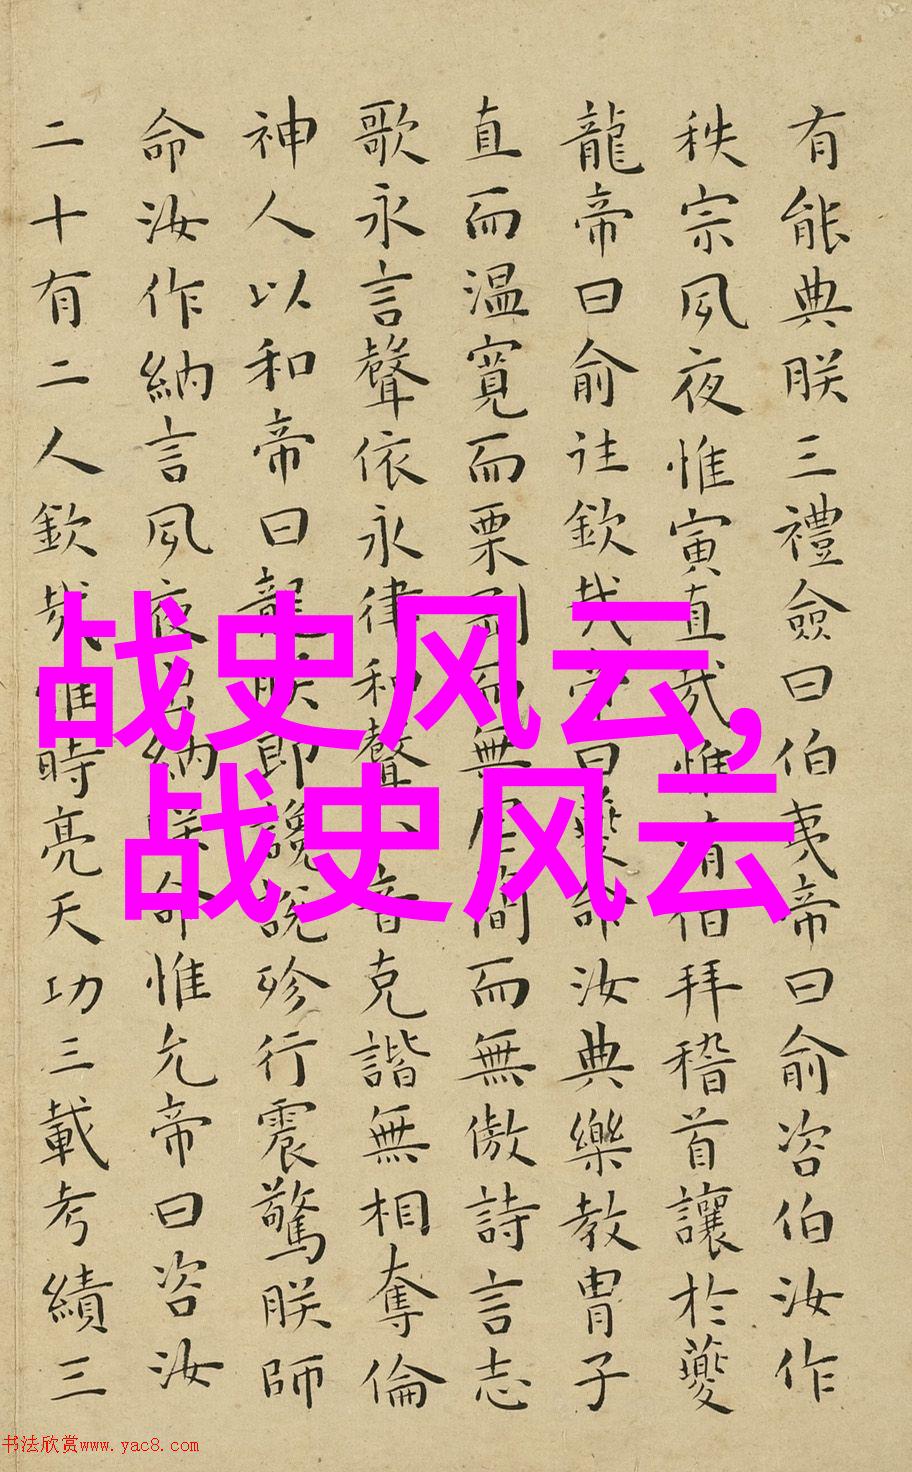 有能典朕三禮僉曰伯夷帝曰俞咨伯汝作
秩宗夙夜惟寅直哉惟清伯拜稽首讓於夔
龍帝曰俞往欽哉帝曰夔命汝典樂教冑子
直而温寬而栗剛而無虐簡而無傲詩言志
歌永言聲依永律和聲八音克諧無相奪倫
神人以和帝曰龍朕即讒說殄行震驚朕師
命汝作納言夙夜出納朕命惟允帝曰咨汝
二十有二人欽哉惟時亮天功三載考績三
战史风云,
战史风云
书法欣赏www.yac8.com